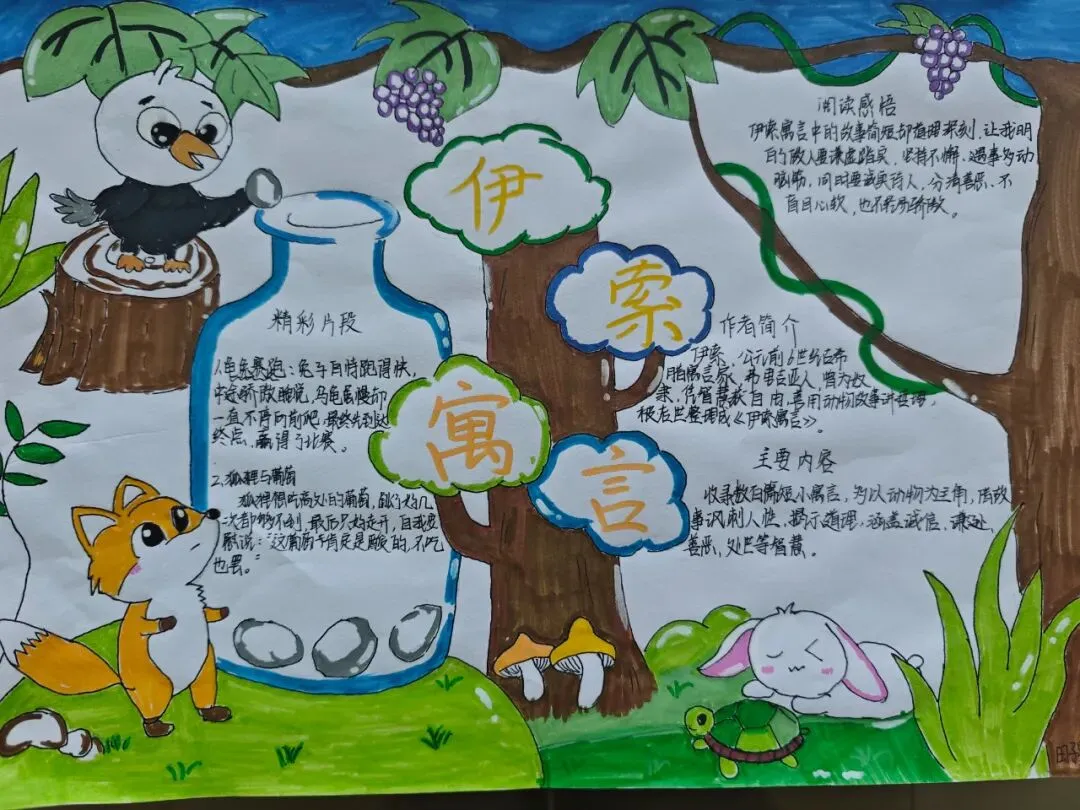 伊
索
寓
言
精彩片段
1.龟兔赛跑:兔子自恃跑得快,
中途骄傲睡觉,乌龟虽慢却
一直不停向前爬,最终先到达
终点,赢得了比赛。
2.狐狸与葡萄
狐狸想吃高处的葡萄,蹦了好几
次都够不到,最后只好走开,自我安
慰说:“这葡萄肯定是酸的,不吃
也罢。”
阅读感悟
伊索寓言中的故事简短却道理深刻,让我明
白做人要谦虚踏实,坚持不懈、遇事多动
脑筋,同时要诚实待人,分清善恶、不
盲目心软,也不轻易骄傲。
作者简介
伊索,公元前6世纪古希
腊寓言家,弗里吉亚人,曾为奴
隶,凭智慧获自由,善用动物故事讲道理,
被后世整理成《伊索寓言》。
主要内容
收录数百篇短小寓言,多以动物为主角,用故
事讽刺人性、揭示道理,涵盖诚信、谦逊、
善恶、处世等智慧。